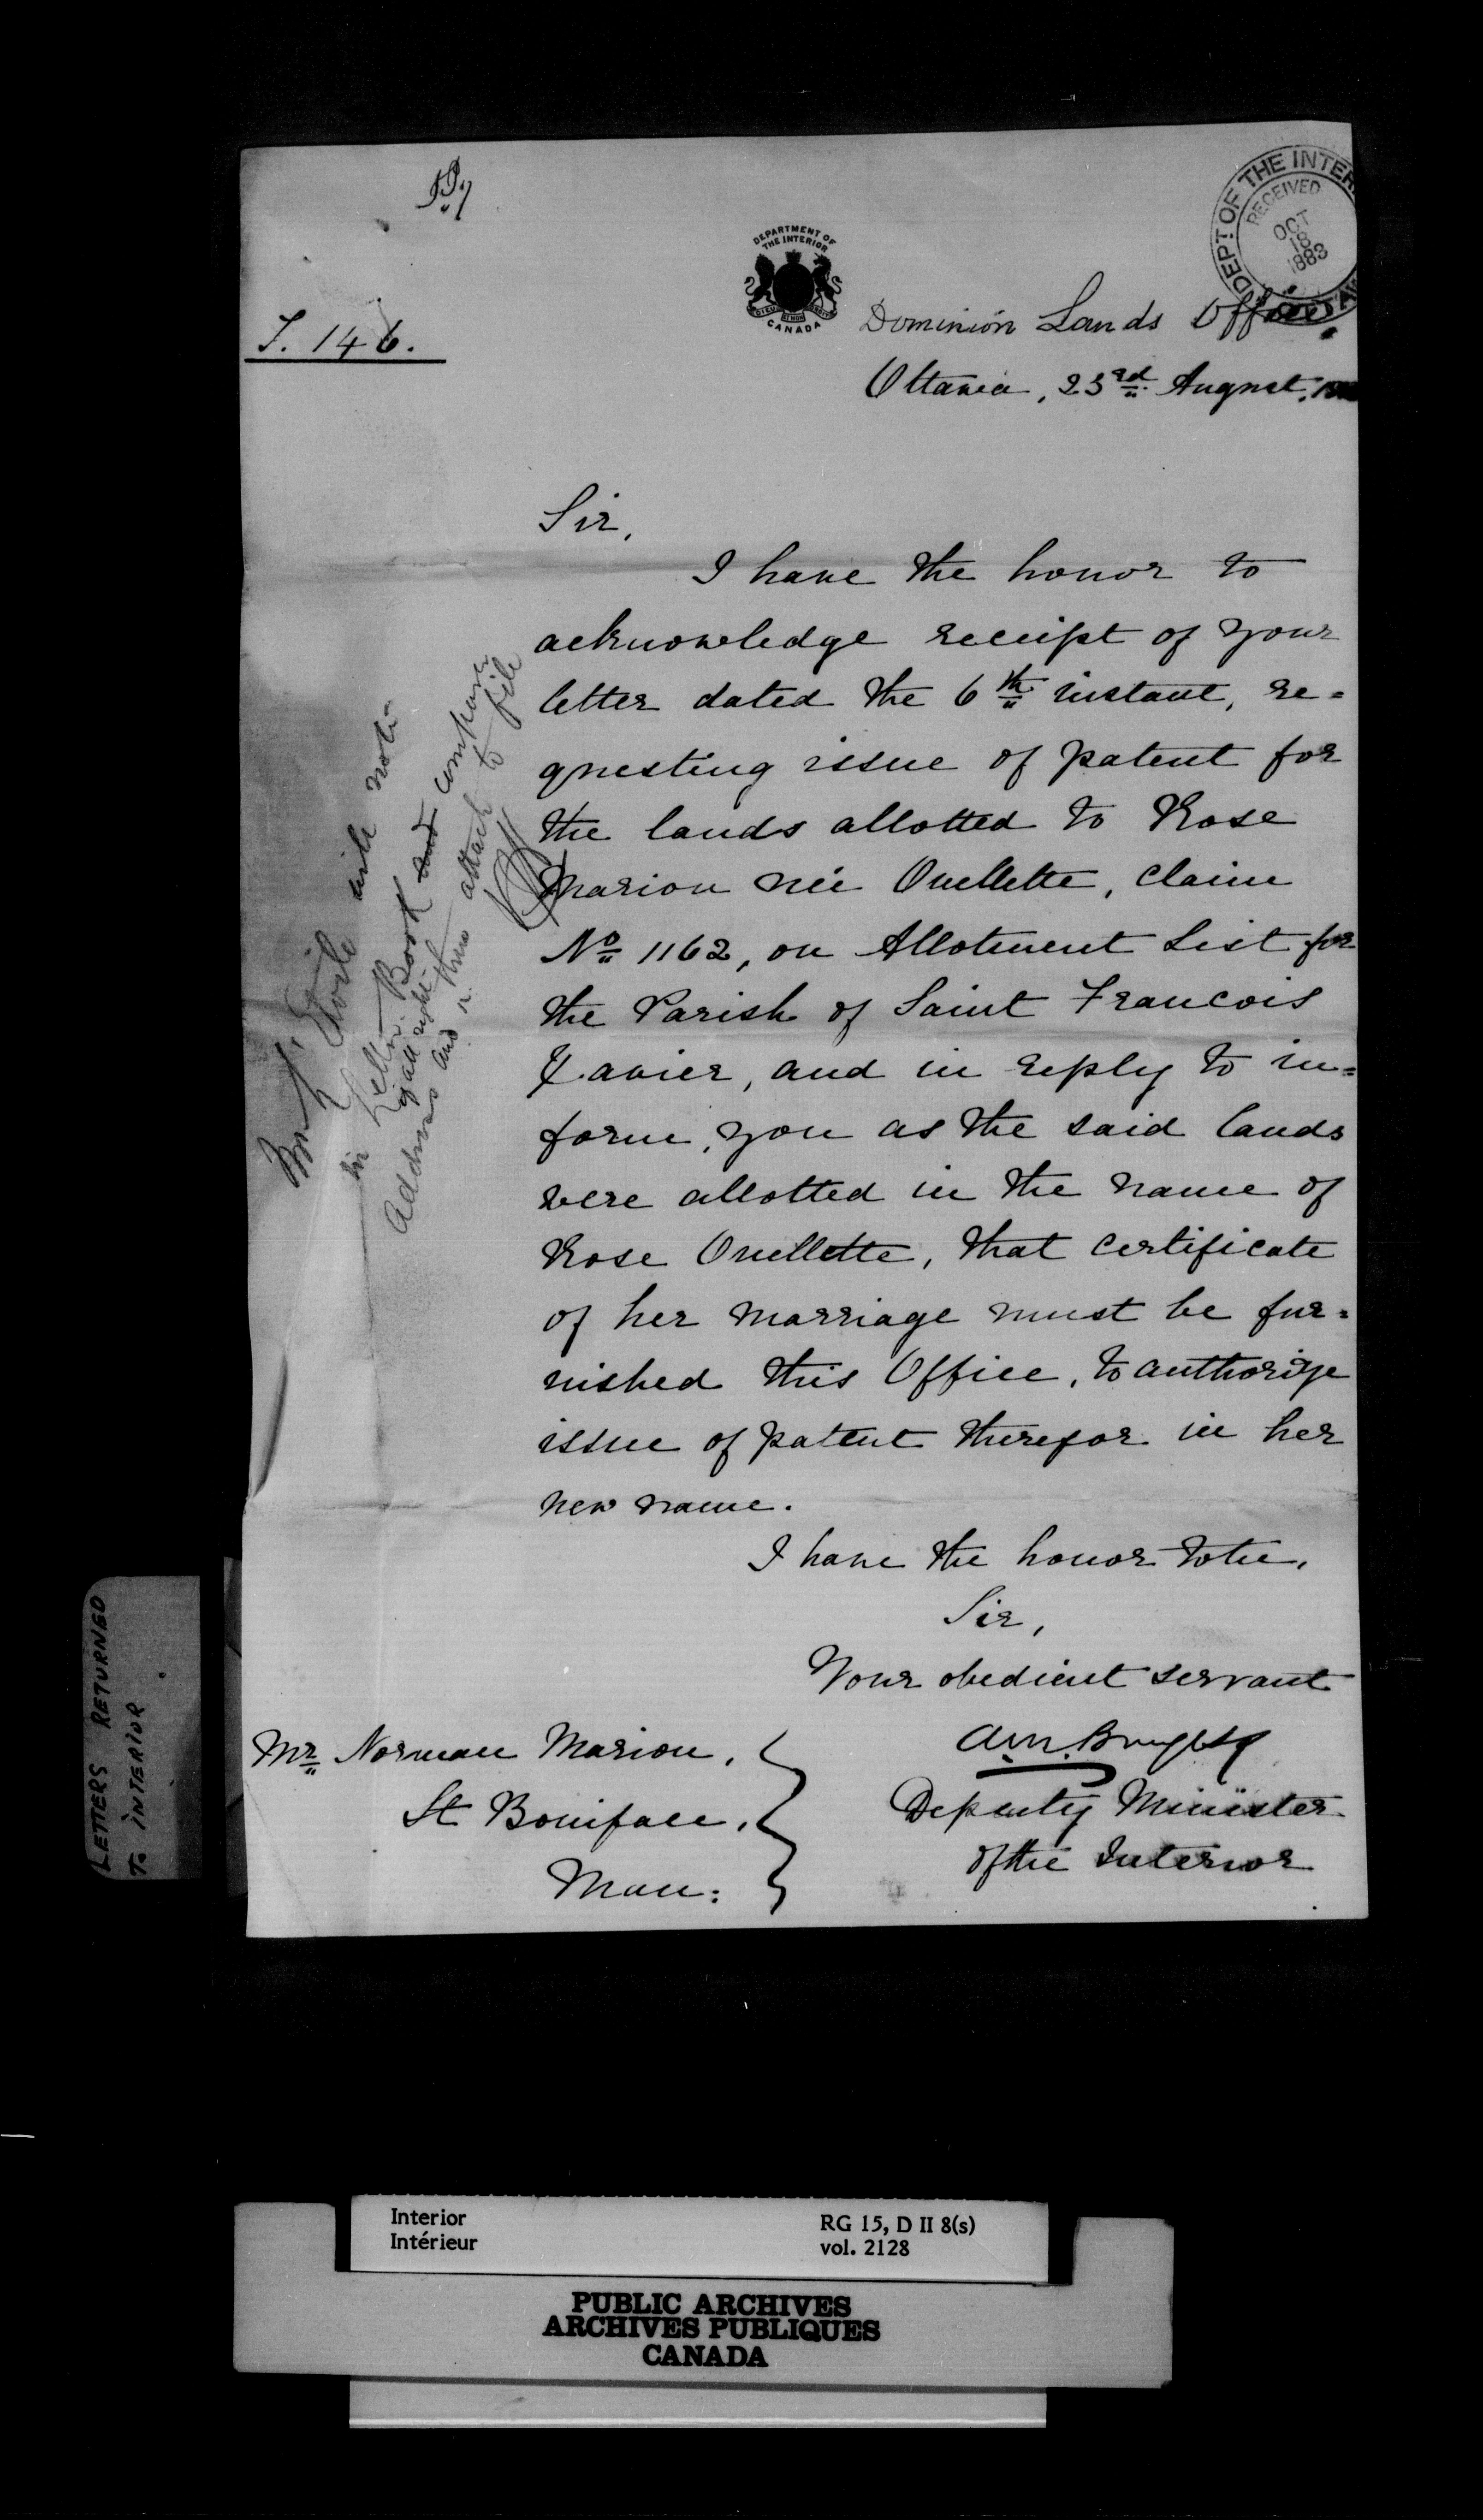 DEPT OF THE INTER
RECEIVED
OCT
18
1883
DEPARTMENT OF
THE INTERIOR
CANADA
S. 146.
Dominion Lands Office
Ottawa, 23rd August,
Sir,
I have the honor to
acknowledge receipt of your
letter dated the 6th instant, re=
questing issue of patent for
the lands allotted to Rose
Marion née Ouellette, claim
No 1162, on Allotment List for
the Parish of Saint Francois
Xavier, and in reply to in=
form, you as the said lands
were allotted in the name of
Rose Ouellette, that certificate
of her marriage must be fur=
nished this Office, to authorize
issue of patent therefor in her
new name.
I have the honor to be,
Sir,
Your obedient servant
Deputy Minister
of the Interior
Mr Norman Marion,
St Boniface,
Man:
in Letter Book and compare
Address and attach to file
LETTERS RETURNED
TO INTERIOR
Interior
Intérieur
RG 15, D II 8(s)
vol. 2128
PUBLIC ARCHIVES
ARCHIVES PUBLIQUES
CANADA